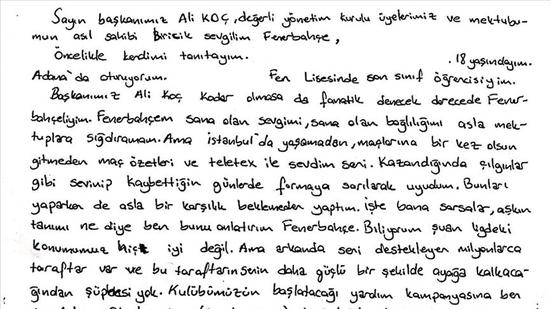 Sayın başkanımız Ali KOÇ, değerli yönetim kurulu üyelerimiz ve mektubu-
mun asıl sahibi Biricik sevgilim Fenerbahçe,
Öncelikle kendimi tanıtayım. . 18 yaşındayım.
Adana'da oturuyorum. Fen Lisesinde son sınıf öğrencisiyim.
Başkanımız Ali Koç kadar olmasa da fanatik denecek derecede Fener-
bahçeliyim. Fenerbahçem sana olan sevgimi, sana olan bağlılığımı asla mek-
tuplara sığdıramam. Ama İstanbul'da yaşamadan, maçlarına bir kez olsun
gitmeden maç özetleri ve teletex ile sevdim seni. Kazandığında çılgınlar
gibi sevinip kaybettiğin günlerde formaya sarılarak uyudum. Bunları
yaparken de asla bir karşılık beklemeden yaptım. İşte bana sorsalar, aşkın
tanımı ne diye ben bunu anlatırım Fenerbahçe. Biliyorum şuan ligdeki
konumumuz hiç iyi değil. Ama arkanda seni destekleyen milyonlarca
taraftar var ve bu taraftarın senin daha güçlü bir şekilde ayağa kalkaca-
ğından şüphesi yok. Kulübümüzün başlatacağı yardım kampanyasına ben